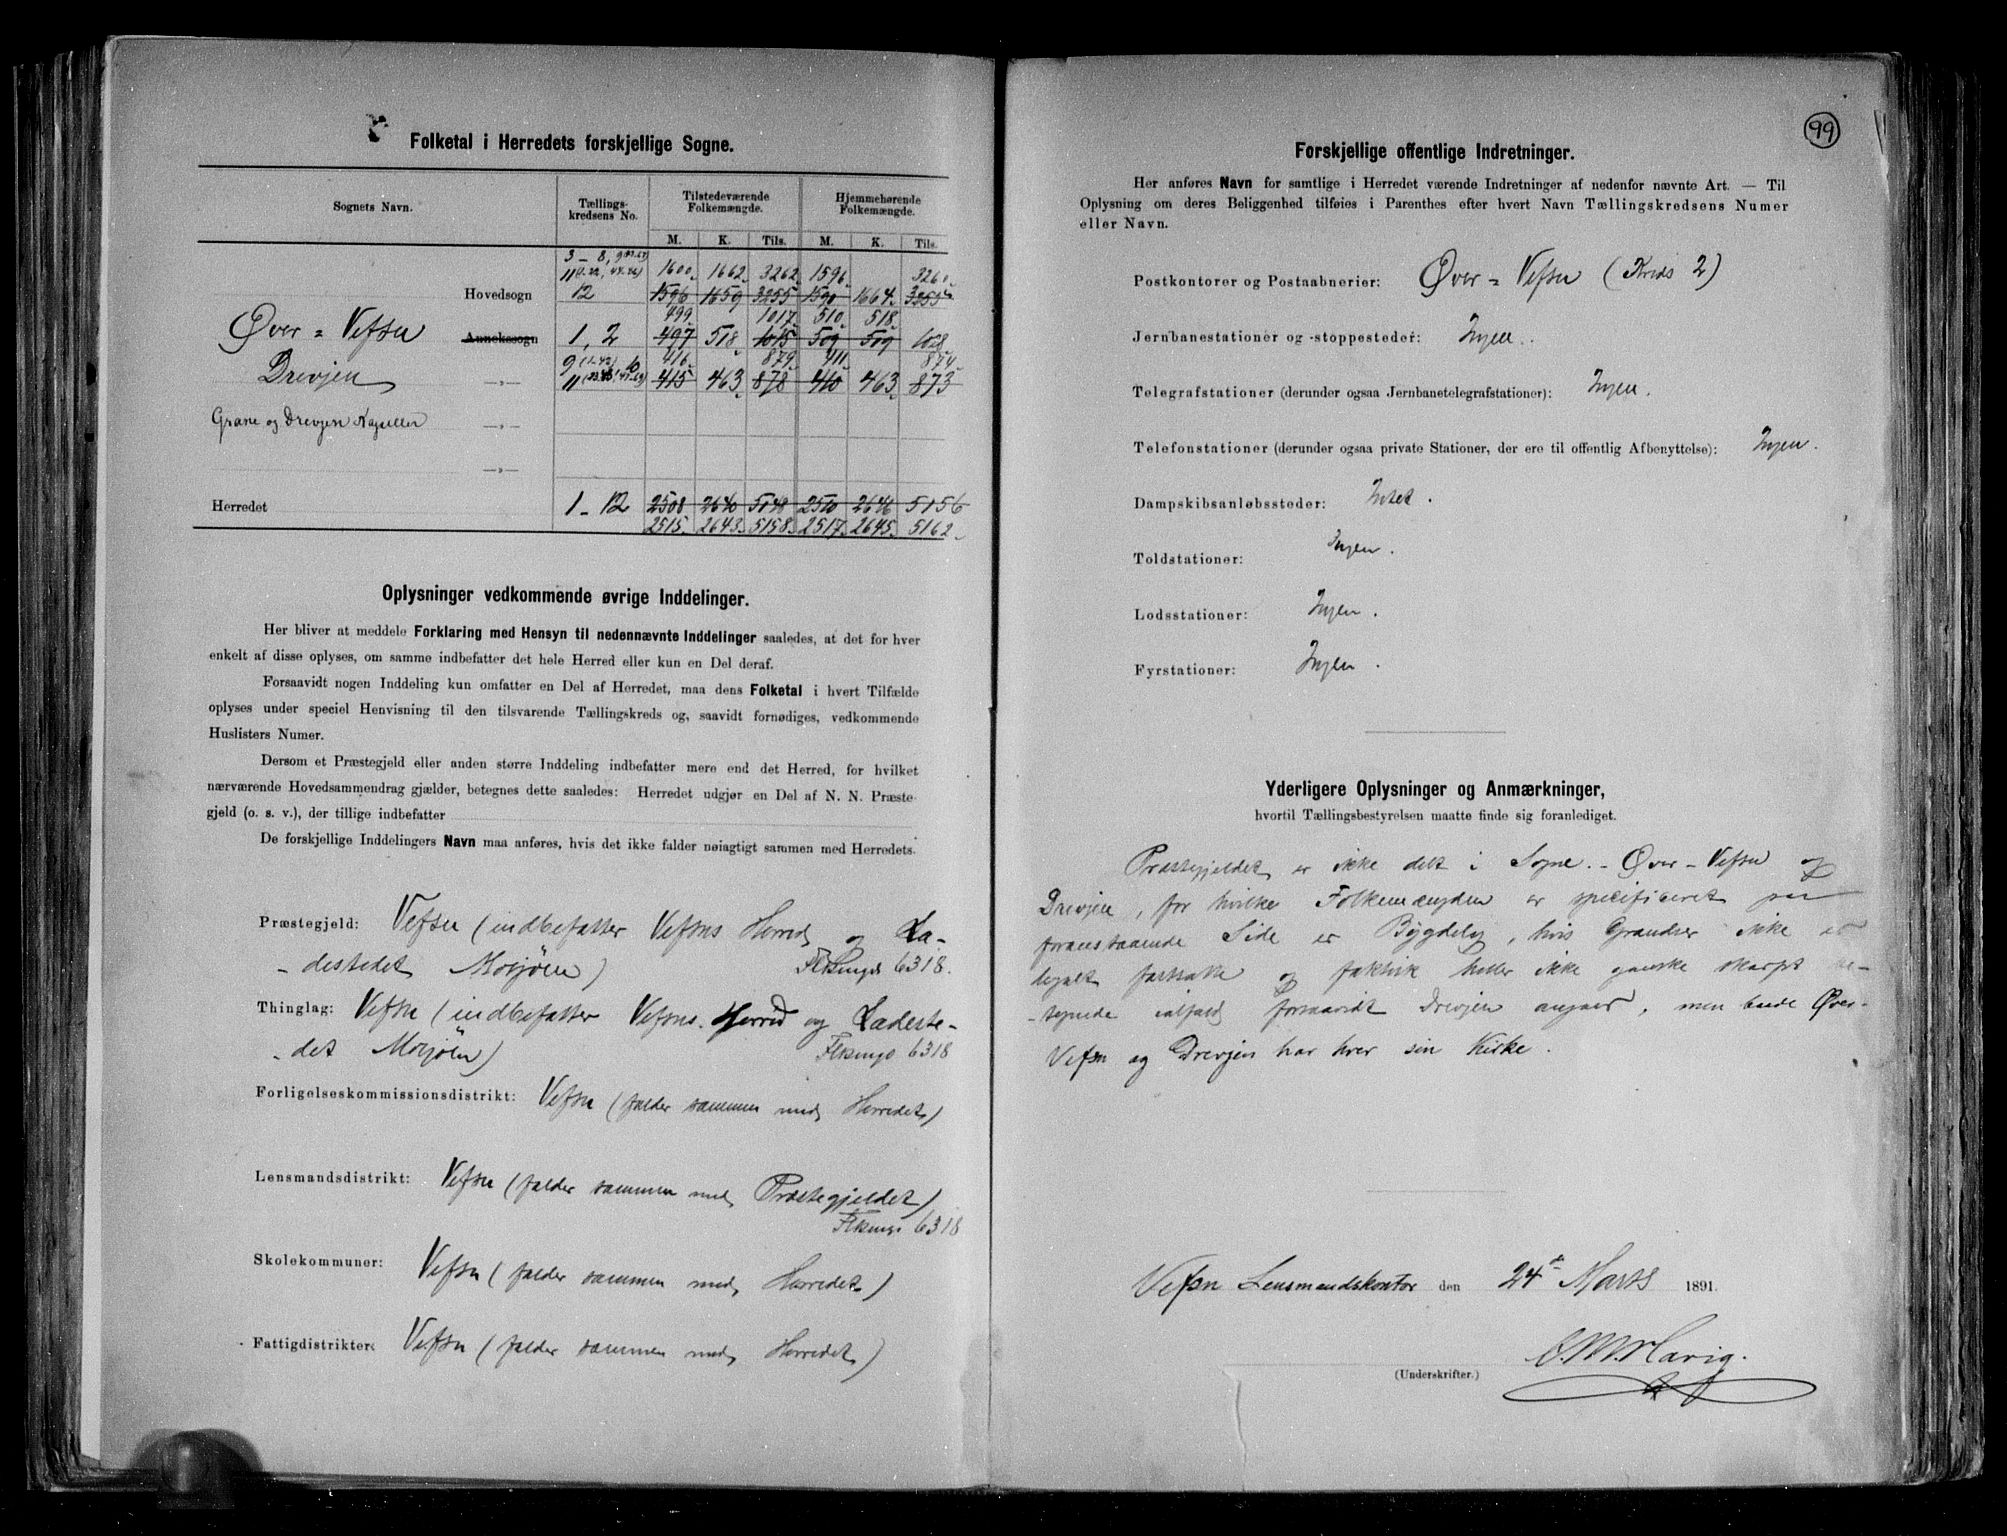 Folketal i Herredets forskjellige Sogne.
Sognets Navn. Tællings-kredsens No. Tilstedeværende Folkemængde. Hjemmehørende Folkemængde.
M. K. Tils. M. K. Tils.
3 - 8, 9
11 1600 1662 3262 1596 3260
Hovedsogn 12 1596 1659 3255 1590 1664 3255
499 1017 510 518
Øver = Vefsn Annekssogn 1, 2 497 518 1015 509 509 1028
9 (1-42) 10 416 879 411 874
Drevjen -„- 11 415 463 878 410 463 873
Grane og Drevjen Kapeller -„-
-„-
Herredet 1 - 12 2508 2640 5048 2510 2646 5156
2515 2643 5158 2517 2645 5162
Oplysninger vedkommende øvrige Inddelinger.
Her bliver at meddele Forklaring med Hensyn til nedennævnte Inddelinger saaledes, at det for hver
enkelt af disse oplyses, om samme indbefatter det hele Herred eller kun en Del deraf.
Forsaavidt nogen Inddeling kun omfatter en Del af Herredet, maa dens Folketal i hvert Tilfælde
oplyses under speciel Henvisning til den tilsvarende Tællingskreds og, saavidt fornødiges, vedkommende
Huslisters Numer.
Dersom et Præstegjeld eller anden større Inddeling indbefatter mere end det Herred, for hvilket
nærværende Hovedsammendrag gjælder, betegnes dette saaledes: Herredet udgjør en Del af N. N. Præste-
gjeld (o. s. v.), der tillige indbefatter
De forskjellige Inddelingers Navn maa anføres, hvis det ikke falder nøiagtigt sammen med Herredets.
Præstegjeld: Vefsn (indbefatter Vefsns Herred og La-
-destedet Mosjøen) Flksmgd 6318.
Thinglag: Vefsn (indbefatter Vefsns Herred og Ladeste-
-det Mosjøen) Flksmgd 6318
Forligelseskommissionsdistrikt: Vefsn (falder sammen med Herredet)
Lensmandsdistrikt: Vefsn (falder sammen med Præstegjeldet)
Flksmgd 6318
Skolekommuner: Vefsn (falder sammen med Herredet)
Fattigdistrikter: Vefsn (falder sammen med Herredet)
99
Forskjellige offentlige Indretninger.
Her anføres Navn for samtlige i Herredet værende Indretninger af nedenfor nævnte Art. — Til
Oplysning om deres Beliggenhed tilføies i Parenthes efter hvert Navn Tællingskredsens Numer
eller Navn.
Postkontorer og Postaabnerier: Øver = Vefsn (Kreds 2)
Jernbanestationer og -stoppesteder: Ingen.
Telegrafstationer (derunder ogsaa Jernbanetelegrafstationer): Ingen.
Telefonstationer (derunder ogsaa private Stationer, der ere til offentlig Afbenyttelse): Ingen.
Dampskibsanløbssteder: Intet.
Toldstationer: Ingen.
Lodsstationer: Ingen.
Fyrstationer: Ingen.
Yderligere Oplysninger og Anmærkninger,
hvortil Tællingsbestyrelsen maatte finde sig foranlediget.
Præstegjeldet er ikke delt i Sogne. - Øver - Vefsn og
Drevjen, for hvilke Folkemængden er specificeret paa
foranstaaende Side er Bygdelag, hvis Grændser ikke er
legalt fastsatte og faktisk heller ikke ganske skarpt be-
-stemte ialfald forsaavidt Drevjen angaar, men baade Øver-
Vefsn og Drevjen har hver sin Kirke.
Vefsn Lensmandskontor den 24de Marts 1891.
O. M. Havig.
(Underskrifter.)